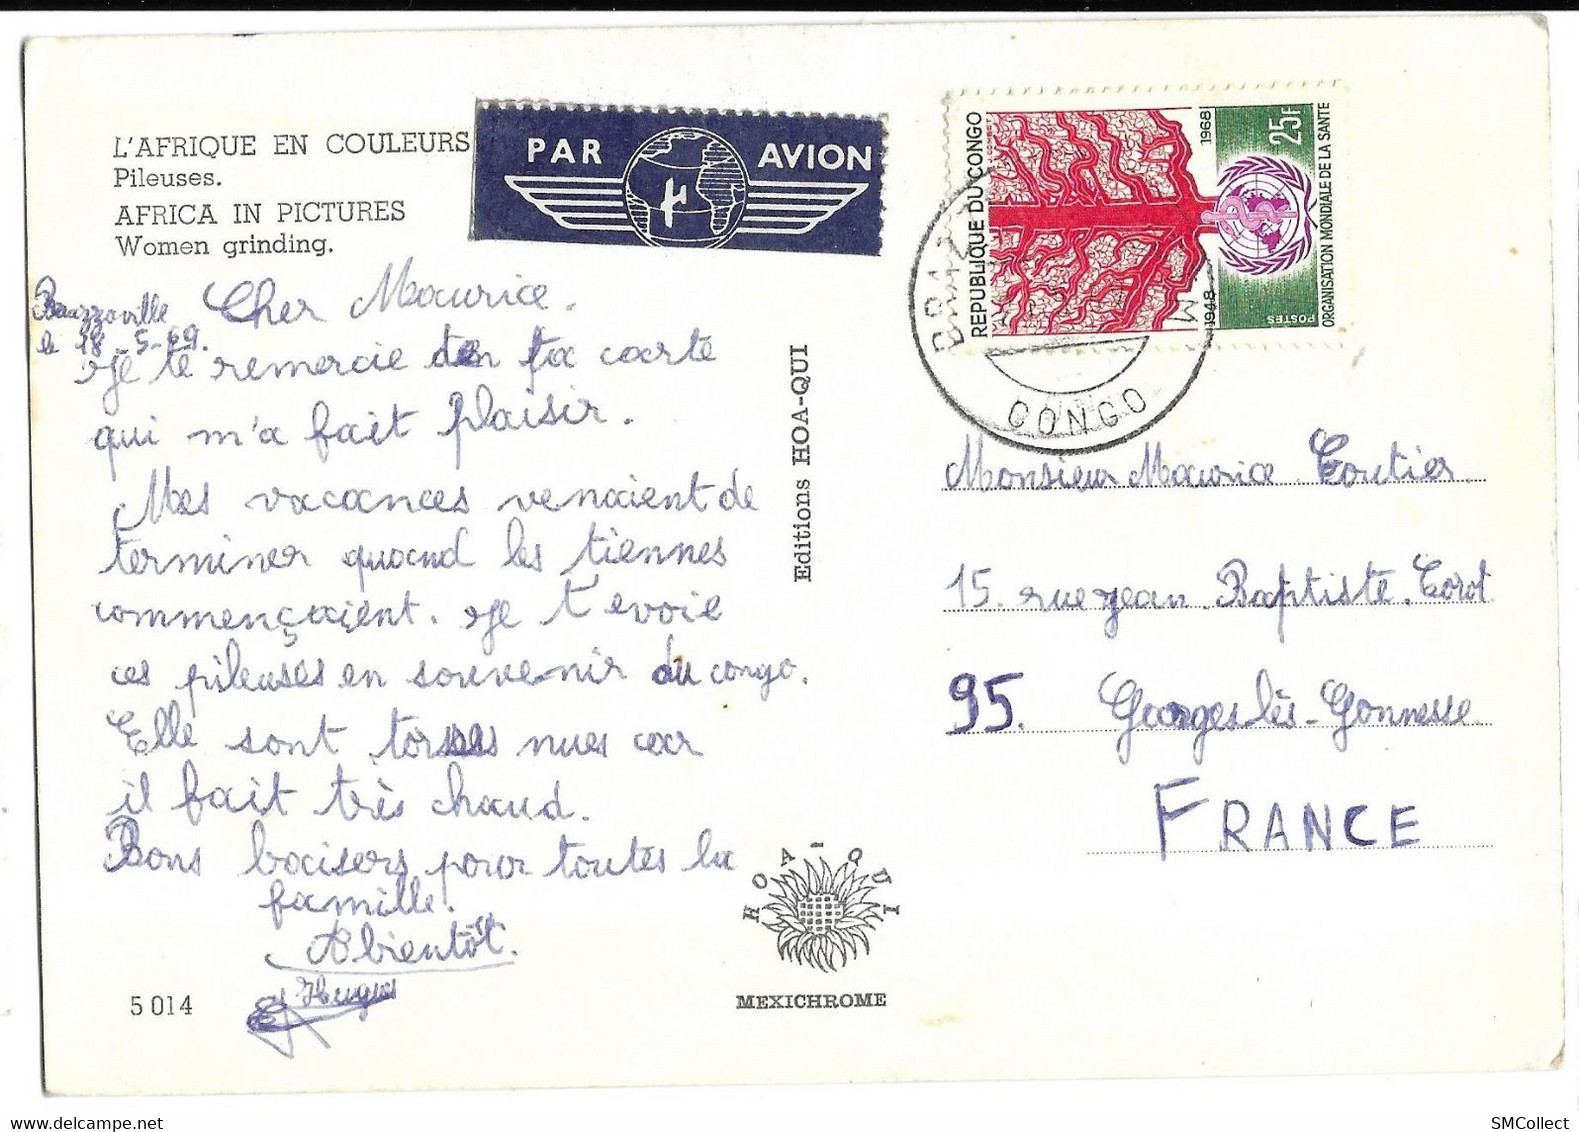 L'AFRIQUE EN COULEURS
Pileuses.
AFRICA IN PICTURES
Women grinding.
PAR AVION
REPUBLIQUE DU CONGO
1948 1968
25F
POSTES
ORGANISATION MONDIALE DE LA SANTE
CONGO
le 18-5-69.
Cher Maurice.
Je te remercie de ta carte
qui m'a fait plaisir.
Mes vacances venaient de
terminer quand les tiennes
commençaient. Je t'evoie
ces pileuses en souvenir du congo.
Elle sont torses nues car
il fait très chaud.
Bons baisers pour toutes la
famille.
A bientôt.
Hugues
5014
Editions HOA-QUI
HOA-QUI
MEXICHROME
Monsieur Maurice Coutier
15. rue jean. Baptiste. Corot
95. Georges lès-Gonnesse
FRANCE
SMCollect